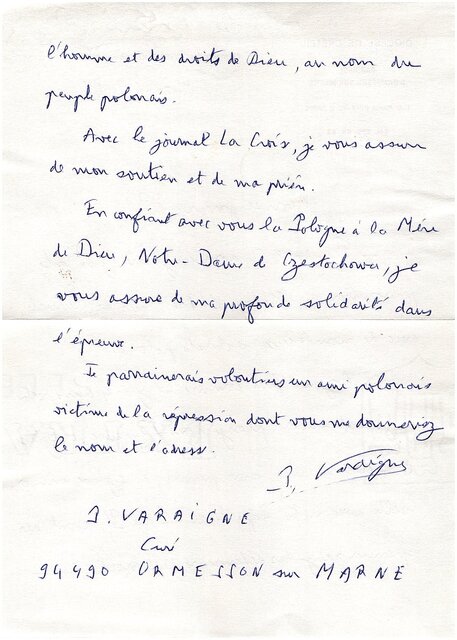 l'homme et des droits de Dieu, au nom du
peuple polonais.
Avec le journal La Croix, je vous assure
de mon soutien et de ma prière.
En confiant avec vous la Pologne à la Mère
de Dieu, Notre-Dame de Czestochowa, je
vous assure de ma profonde solidarité dans
l'épreuve.
Je parrainerais volontiers un ami polonais
victime de la répression dont vous me donneriez
le nom et l'adresse.
J. Varaigne
J. VARAIGNE
Curé
94490 ORMESSON sur MARNE